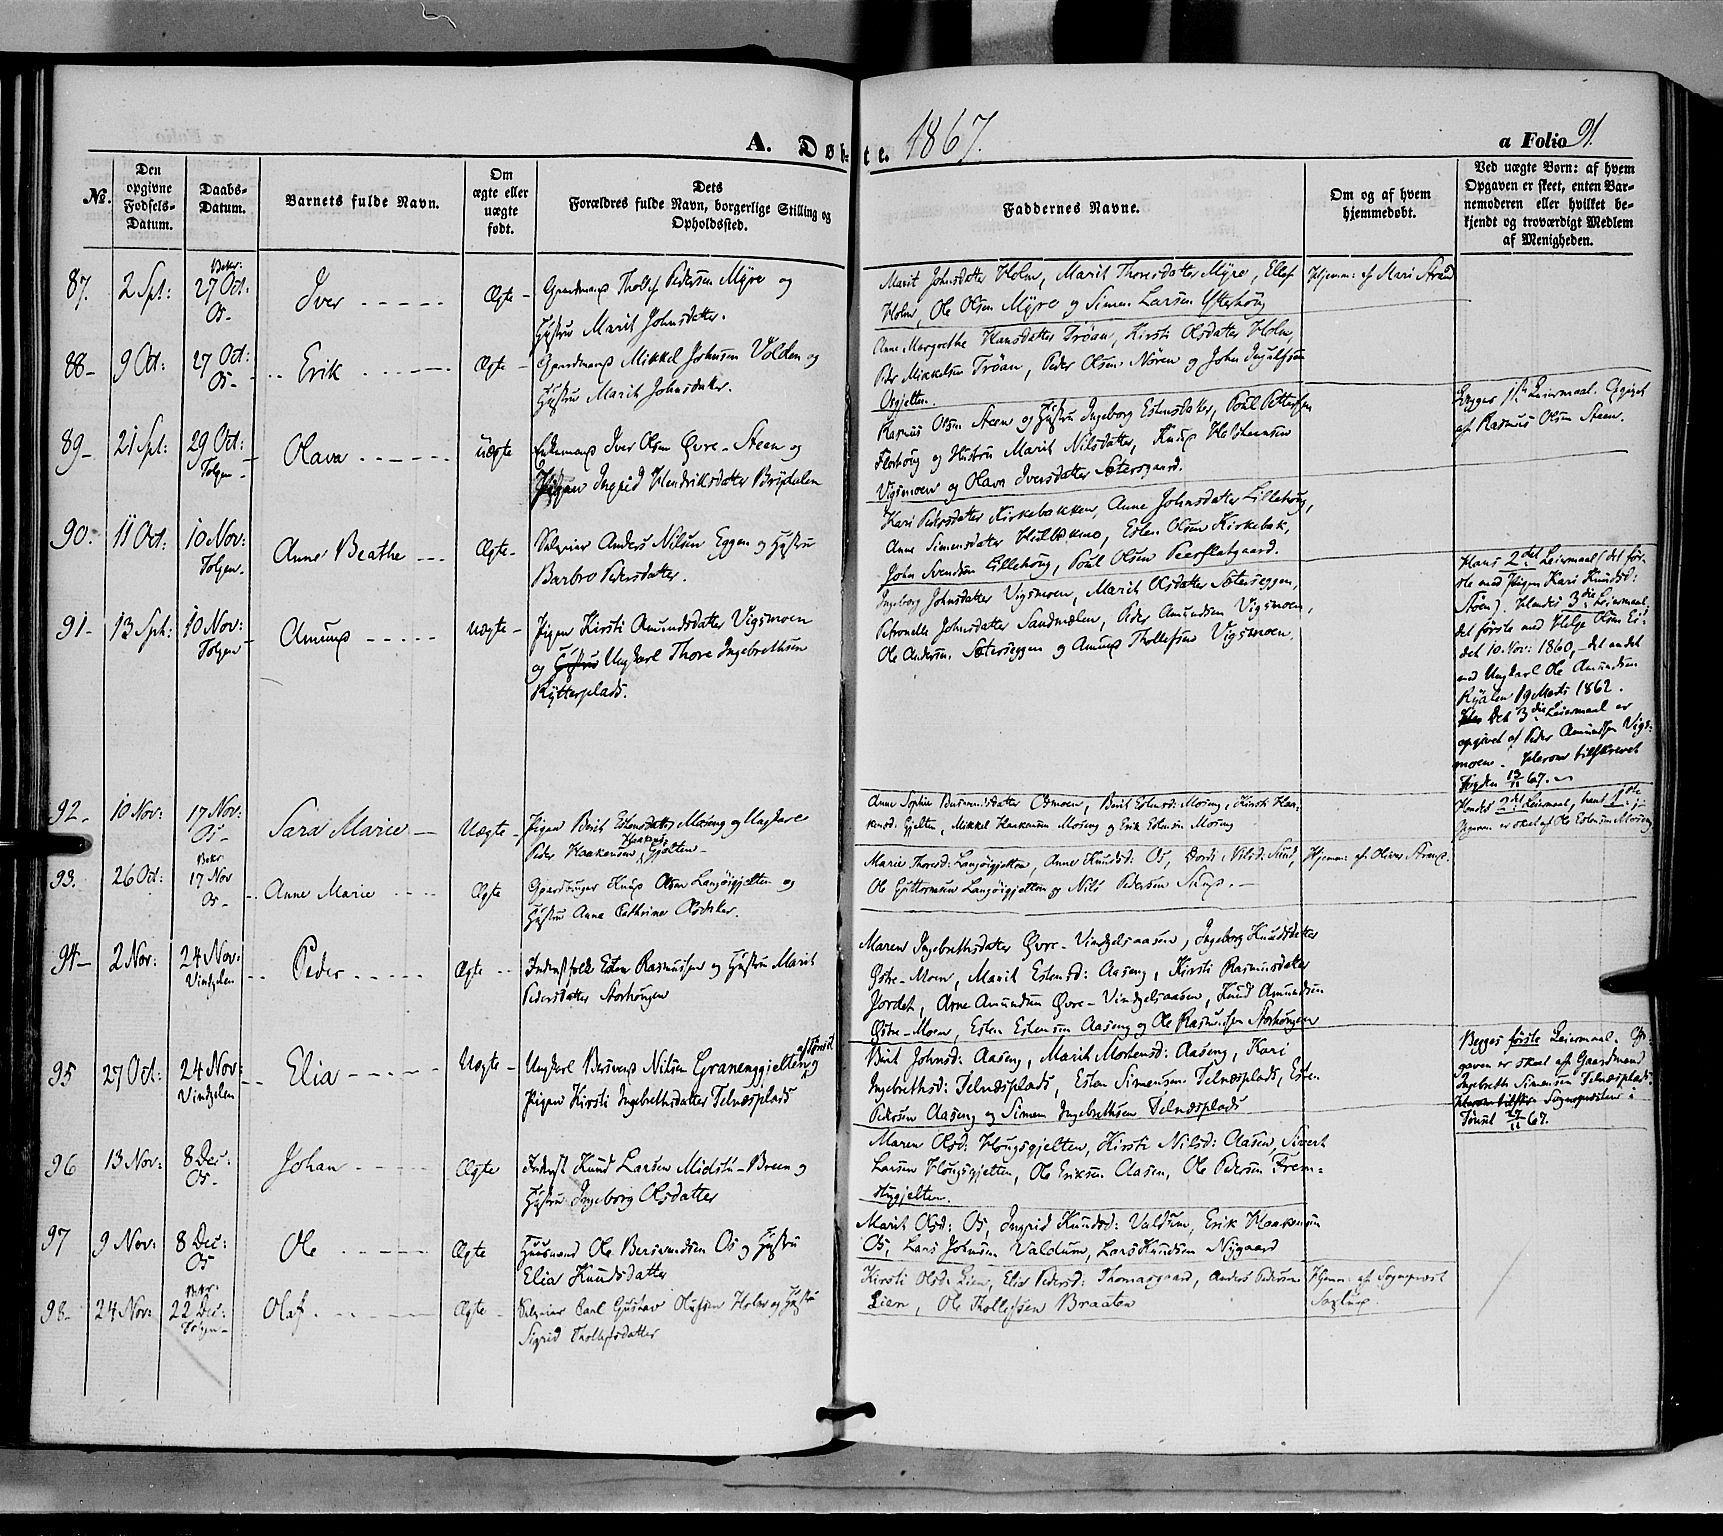 A. Døb-te. 1867.
a Folio 91.
No.
Den opgivne Fødsels-Datum.
Daabs-Datum.
Barnets fulde Navn.
Om ægte eller uægte født.
Dets Forældres fulde Navn, borgerlige Stilling og Opholdssted.
Faddernes Navne.
Om og af hvem hjemmedøbt.
Ved uægte Børn: af hvem Opgaven er skeet, enten Barnemoderen eller hvilket bekjendt og troværdigt Medlem af Menigheden.
87. 2 Spt: Bekr: 27 Oct: Os- Iver Ægte-
Gaardmand Thollef Pedersen Myre og
Hustru Marit Johnsdatter.
Marit Johnsdatter Holm, Marit Thoresdatter Myre, Ellef
Holm, Ole Olsen Myre og Simen Larsen Ytterhoug
Hjemm: af Mari Strand
88- 9 Oct: 27 Oct: Os- Erik Ægte-
Gaardmand Mikkel Johnsen Volden og
Hustru Marit Johnsdatter.
Anne Margrethe Hansdatter Trøan, Kirsti Olsdatter Holm,
Peder Mikkelsen Trøan, Peder Olsen Nøren og John Ingulfsen
Osgjelten.
89- 21 Spt: 29 Oct: Tolgen- Olava Uægte
Enkemand Iver Olsen Øvre-Steen og
Pigen Ingrid Hendriksdatter Brydalen
Rasmus Olsen Steen og Hustru Ingeborg Estensdatter, Poul Pettersen
Florhoug og Hustru Marit Nilsdatter, Knud
Vigsmoen og Olava Iversdatter Sætersgaard.
Begges 1ste Leiermaal. Opgivet
af Rasmus Olsen Steen.
90- 11 Oct: 10 Nov: Tolgen- Anne Beathe Ægte-
Selveier Anders Nilsen Eggen og Hustru
Barbro Pedersdatter.
Kari Pedersdatter Kirkebakken, Anne Johnsdatter Lillehoug,
Anne Simensdatter Esten Olsen Kirkebak,
John Svendsen Lillehoug, Poul Olsen
91- 13 Spt: 10 Nov: Tolgen Amund Uægte-
Pigen Kirsti Amundsdatter Vigsmoen
og Hustru Ungkarl Thore Ingebrethsen
Rytterplads.
Ingeborg Johnsdatter Vigsmoen, Marit Olsdatter Sæterseggen,
Petronelle Johnsdatter Sandmælen, Peder Amundsen Vigsmoen,
Ole Andersen Sæterseggen og Amund Thollefsen Vigsmoen.
Hans 2det Leiermaal (det før-
ste med Pigen Kari Knudsd:
Støen). Hendes 3die Leiermaal,
det første med Helge Olsen Ei-
det 10 Nov: 1860, - det andet
med Ungkarl Ole Amundsen
Ryalen 19 Marts 1862.
Det 3die Leiermaal er
opgivet af Peder Amundsen Vigs-
moen. Herom tilskrevet
Fogden 13/11 67.
92- 10 Nov: 17 Nov: Os- Sara Marie Uægte-
Pigen Berit Estensdatter Moseng og Ungkarl
Peder Haakensen Gjelten-
Anne Sophie Osmoen, Berit Estensd: Moseng, Kirsti Haa-
kensd: Gjelten, Mikkel Haakensen Moseng og Erik Estensen Moseng
Hendes 2det Leiermaal, hans 1ste
Opgaven er skeet af Ole Estensen Moseng
93. 26 Oct: Bekr: 17 Nov Os- Anne Marie Ægte
Gaardbruger Knud Olsen Langøigjelten og
Hustru Anne Cathrine Olsdatter.
Marie Thoresd: Langøigjelten, Anne Knudsd: Os, Dordi Nilsd: Sund,
Ole Guttormsen Langøigjelten og Nils Pedersen Sund.
Hjemm: af Oliver Strand.
94- 2 Nov: 24 Nov: Vindgelen Peder Ægte
Inderstfolk Esten Rasmussen og Hustru Marit
Pedersdatter Storhougen
Maren Ingebrethsdatter Øvre-Vindgelsaasen, Ingeborg Knudsdatter
Østre-Moen, Marit Estensd: Aaseng, Kirsti Rasmusdatter
Jordet, Arne Amundsen Øvre-Vindgelsaasen, Knud Amundsen
Østre-Moen, Esten Estensen Aaseng og Ole Rasmussen Storhougen
95 27 Oct: 24 Nov: Vindgelen Elia Uægte-
Ungkarl Bersvend Nilsen Granenggjelten af Tønset og
Pigen Kirsti Ingebrethsdatter Telnæsplads
Berit Johnsd: Aaseng, Marit Mortensd: Aaseng, Kari
Ingebrethsd: Telnæsplads, Esten Simensen Telnæsplads, Esten
Pedersen Aaseng og Simen Ingebrethsen Telnæsplads
Begges første Leiermaal. Op-
gaven er skeet af Gaardmand
Ingebreth Simensen Telnæsplads.
Herom tilskr: Sognepresten i
Tønset 27/11 67.
96 13 Nov: 8 Dec: Os- Johan Ægte
Inderst Knud Larsen Midstu-Breen og
Hustru Ingeborg Olsdatter
Maren Olsd: Hougsgjelten, Kirsti Nilsd: Aasen, Sivert
Larsen Hougsgjelten, Ole Eriksen Aasen, Ole Pedersen Frem-
stugjelten.
97 9 Nov: 8 Dec: Os Ole Ægte
Huusmand Ole Bersvendsen Os og Hustru
Elia Knudsdatter
Marit Olsd: Os, Ingrid Knudsd: Valdum, Erik Haakensen
Os, Lars Johnsen Valdum, Lars Knudsen Nygaard
98- 24 Nov: Bekr: 22 Dec: Tolgen- Olaf Ægte
Selveier Carl Gustav Olufsen Holm og Hustru
Sigrid Thollefsdatter
Kirsti Olsd: Lien, Elia Pedersd: Thomasgaard, Anders Pedersen
Lien, Ole Thollefsen Braaten
Hjemm: af Sogneprest